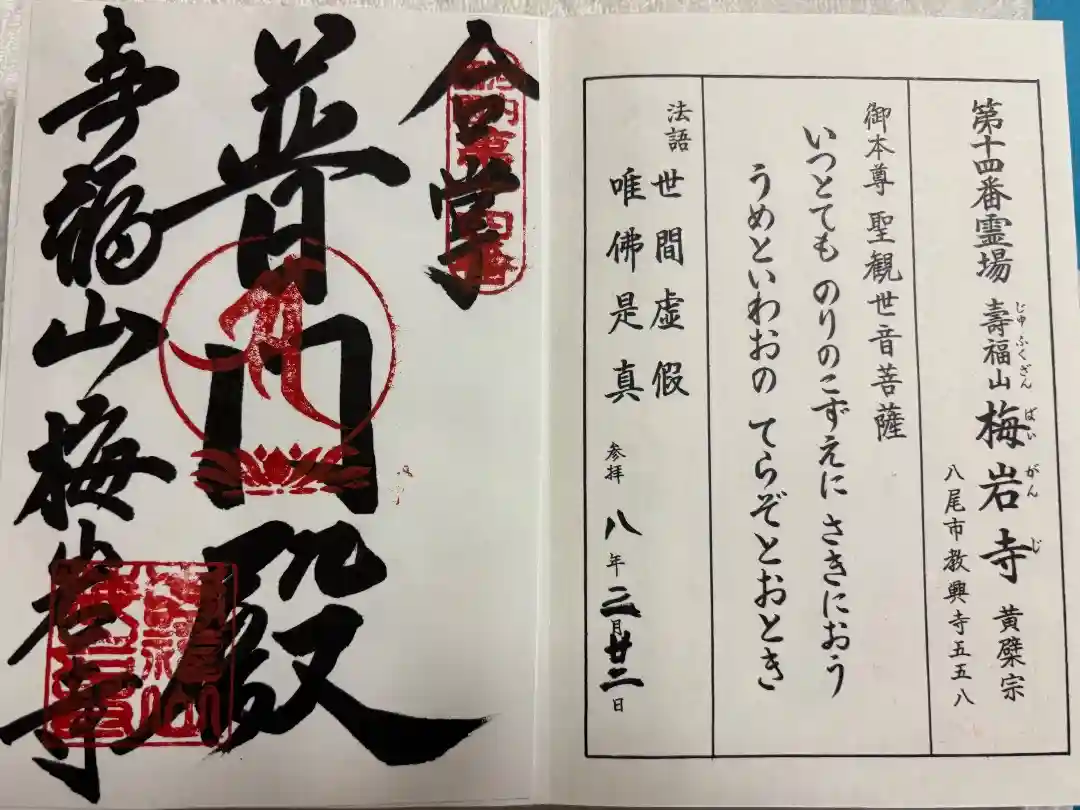 第十四番霊場 壽福山 梅岩寺 黄檗宗
じゅふくざん ばいがんじ
八尾市教興寺五五八
御本尊 聖観世音菩薩
いつとても のりのこずえに さきにおう
うめといわおの てらぞとおとき
法語
世間虚假
唯佛是真
参拝 八年二月廿二日
合掌
普門殿
壽福山梅岩寺